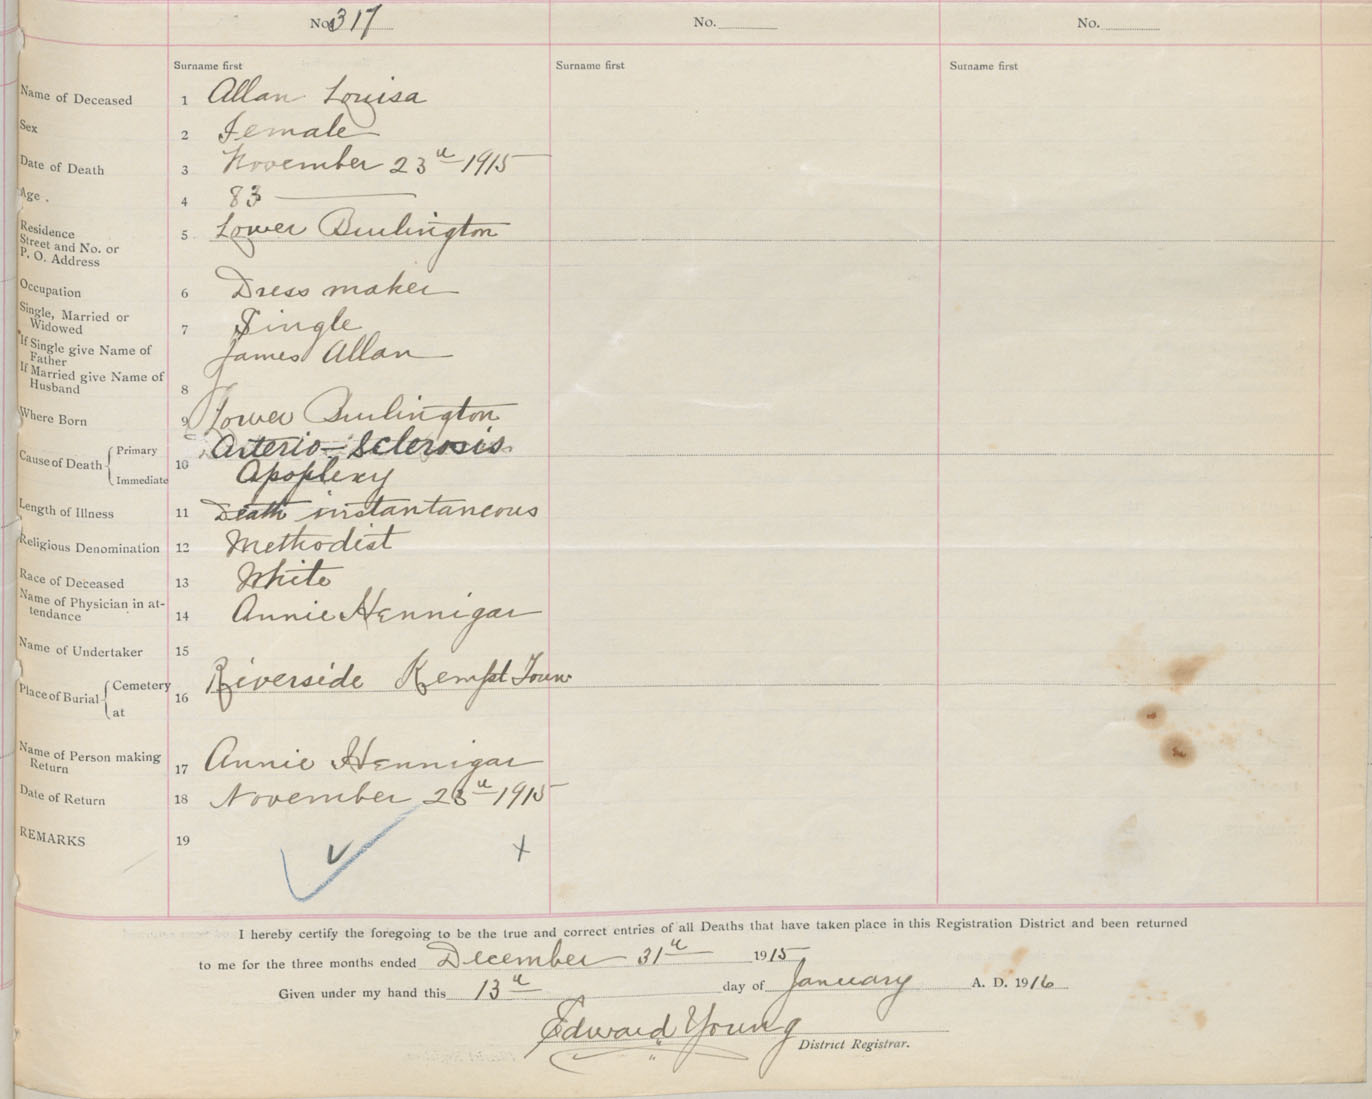 No. 317 No. No.
Surname first Surname first Surname first
Name of Deceased 1 Allan Louisa
Sex 2 Female
Date of Death 3 November 23rd 1915
Age . 4 83
Residence
Street and No. or 5 Lower Burlington
P. O. Address
Occupation 6 Dress maker
Single, Married or
Widowed 7 Single
If Single give Name of James Allan
Father
If Married give Name of
Husband 8
Where Born 9 Lower Burlington
Cause of Death { Primary 10 Arterio-Sclerosis
Immediate Apoplexy
Length of Illness 11 Death instantaneous
Religious Denomination 12 Methodist
Race of Deceased 13 White
Name of Physician in at-
tendance 14 Annie Hennigar
Name of Undertaker 15
Place of Burial { Cemetery 16 Riverside Kempt Town
at
Name of Person making
Return 17 Annie Hennigar
Date of Return 18 November 1915
REMARKS 19
I hereby certify the foregoing to be the true and correct entries of all Deaths that have taken place in this Registration District and been returned
to me for the three months ended December 31st 1915
Given under my hand this 13th day of January A. D. 1916
Edward Young
District Registrar.